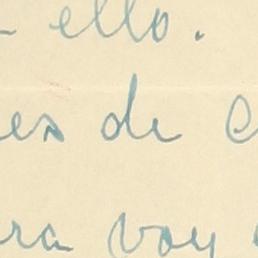 ello.
es de
ra voy